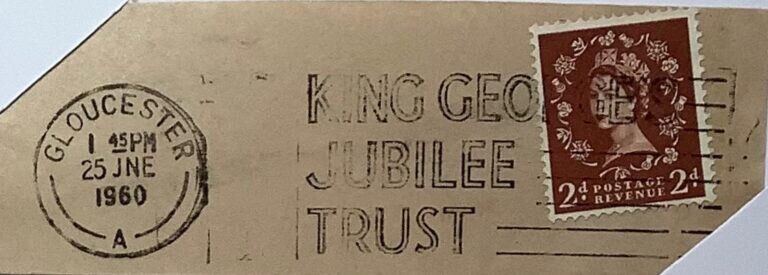 GLOUCESTER
1 45PM
25 JNE
1960
A
KING GEORGE'S
JUBILEE
TRUST
2D POSTAGE 2D
REVENUE